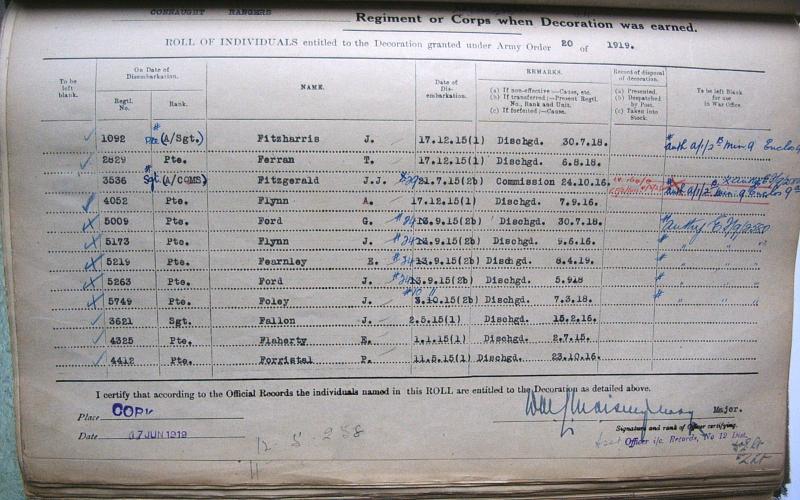 CONNAUGHT RANGERS
Regiment or Corps when Decoration was earned.
ROLL OF INDIVIDUALS entitled to the Decoration granted under Army Order 20 of 1919.
To be left blank.
On Date of Disembarkation.
Regtl. No.
Rank.
NAME.
Date of Disembarkation.
REMARKS.
(a) If non-effective—Cause, etc.
(b) If transferred:—Present Regtl. No., Rank and Unit.
(c) If forfeited:—Cause.
Record of disposal of decoration.
(a) Presented.
(b) Despatched by Post.
(c) Taken into Stock.
To be left Blank for use in War Office.
1092 Pte (A/Sgt.) Fitzharris J. 17.12.15(1) Dischgd. 30.7.18.
2829 Pte. Ferran T. 17.12.15(1) Dischgd. 6.8.18.
3536 Sgt (A/CQMS) Fitzgerald J.J. 21.7.15(2b) Commission 24.10.16.
4052 Pte. Flynn A. 17.12.15(1) Dischgd. 7.9.16.
5009 Pte. Ford G. .9.15(2b) Dischgd. 30.7.18.
5173 Pte. Flynn J. .9.15(2b) Dischgd. 9.6.16.
5219 Pte. Fearnley E. .9.15(2b) Dischgd. 8.4.19.
5263 Pte. Ford J. .9.15(2b) Dischgd. 5.918
5749 Pte. Foley J. 3.10.15(2b) Dischgd. 7.3.18.
3621 Sgt. Fallon J. 2.5.15(1) Dischgd. 15.2.16.
4325 Pte. Flaherty E. 1.1.15(1) Dischgd. 2.7.15.
4412 Pte. Forristal P. 11.5.15(1) Dischgd. 23.10.16.
I certify that according to the Official Records the individuals named in this ROLL are entitled to the Decoration as detailed above.
Place COPY
Major.
Signature and rank of Officer certifying.
Date 17 JUN 1919
Officer i/c. Records, No 12 Dist.